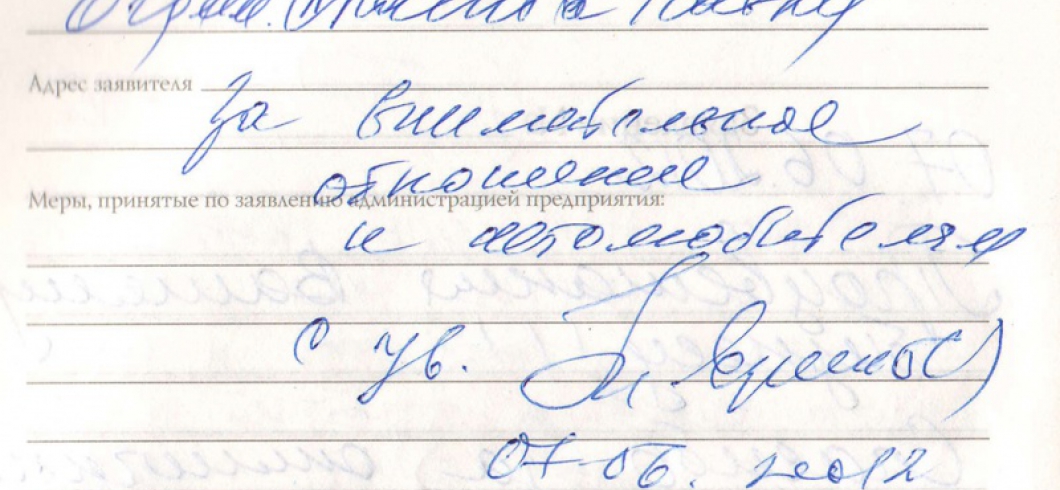 Огром.
Адрес заявителя
За внимательное
отношение
Меры, принятые по заявлению администрацией предприятия:
к автолюбителям
С ув.
07.06.2012